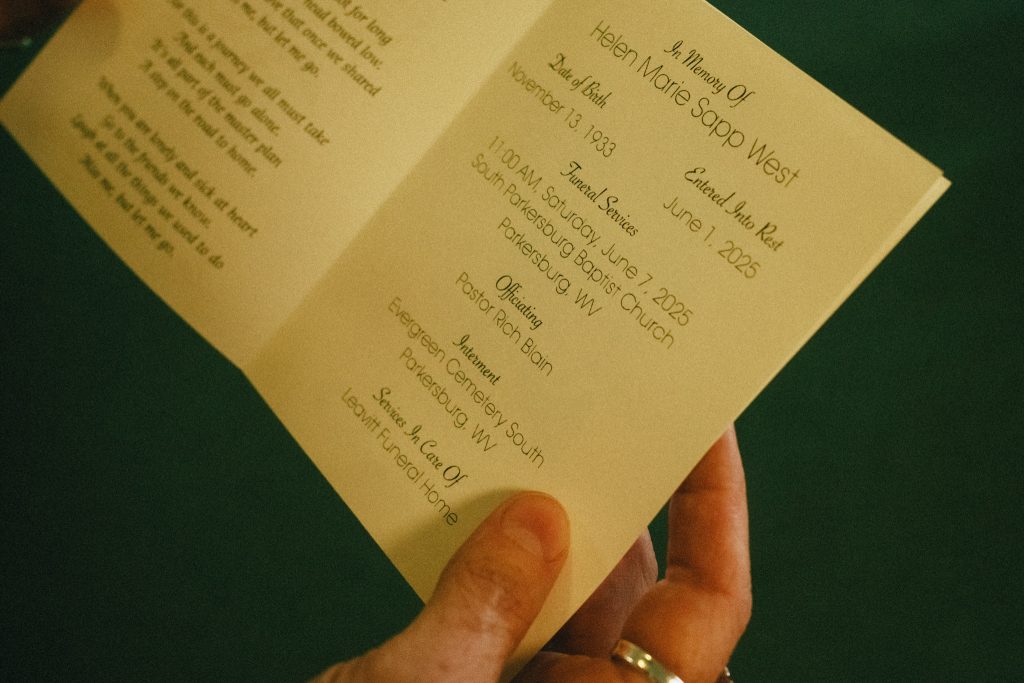 for long
bowed low.
that once we shared
me, but let me go.
this is a journey we all must take
And each must go alone.
It's all part of the master plan
A step on the road to home.
When you are lonely and sick at heart
Go to the friends we know.
Laugh at all the things we used to do
Miss me, but let me go.
In Memory Of
Helen Marie Sapp West
Date of Birth
November 13, 1933
Entered Into Rest
June 1, 2025
Funeral Services
11:00 AM, Saturday, June 7, 2025
South Parkersburg Baptist Church
Parkersburg, WV
Officiating
Pastor Rich Blain
Interment
Evergreen Cemetery South
Parkersburg, WV
Services In Care Of
Leavitt Funeral Home